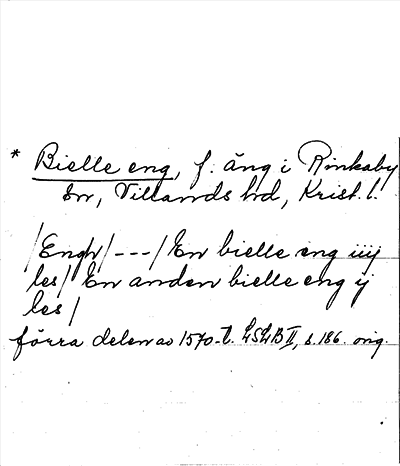 * Bielle eng, f. äng i Rinkaby
sn, Villands hd, Krist. l.
/Engh/ --- / En bielle eng iiij
les/ En anden bielle eng ij
les/
förra delen av 1570-t. LSLB II, s. 186. orig.